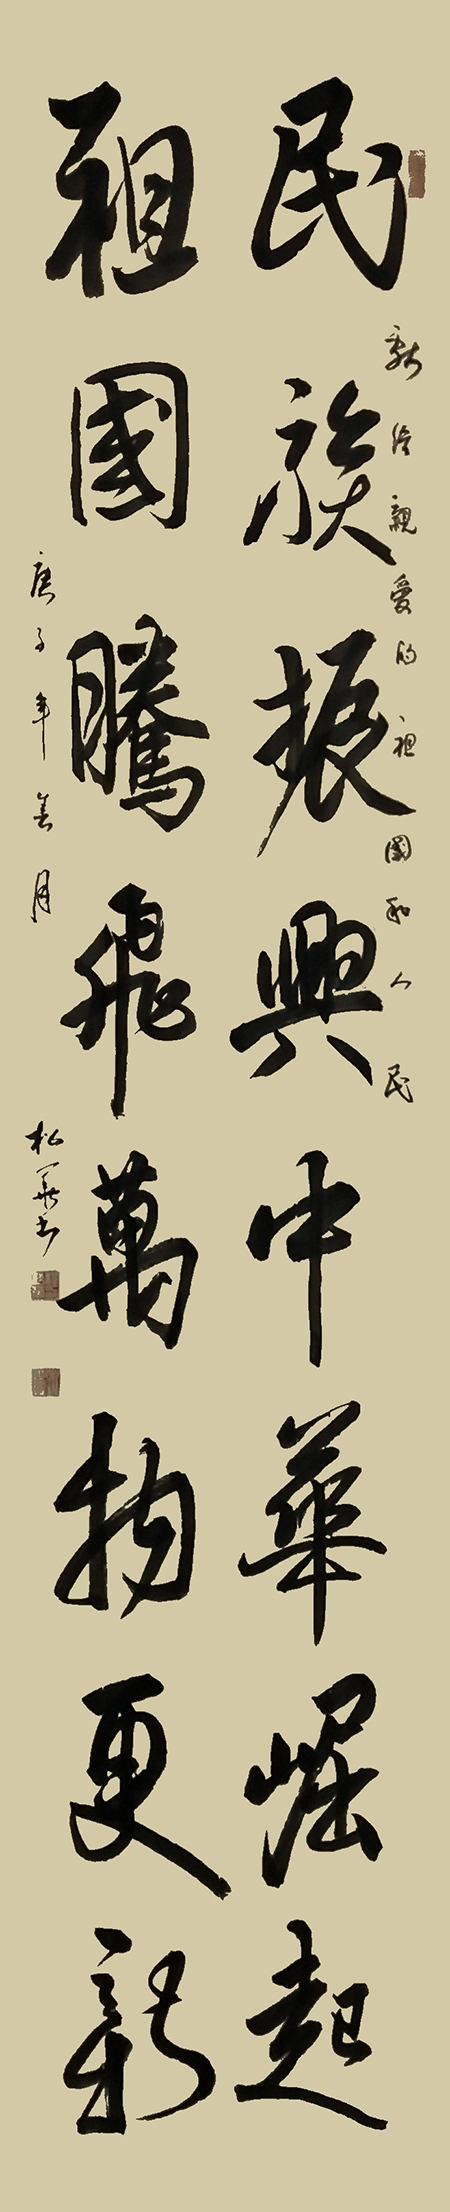 獻给親愛的祖國和人民
民族振興中華崛起
祖國騰飛萬物更新
庚子年姜月
松華書